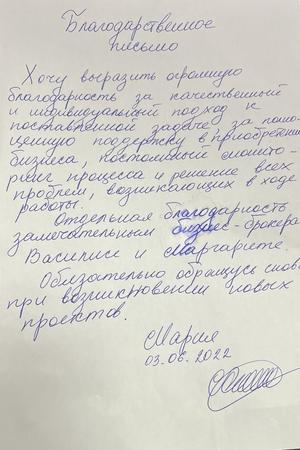 Благодарственное
письмо
Хочу выразить огромную
благодарность за качественный
и индивидуальный подход к
поставленной задаче, за полно-
ценную поддержку в приобретении
бизнеса, постоянный монито-
ринг процесса и решение всех
проблем, возникающих в ходе
работы.
Отдельная благодарность
замечательным бизнес-брокерам
Василисе и Маргарите.
Обязательно обращусь снова
при возникновении новых
проектов.
Мария
03.06.2022